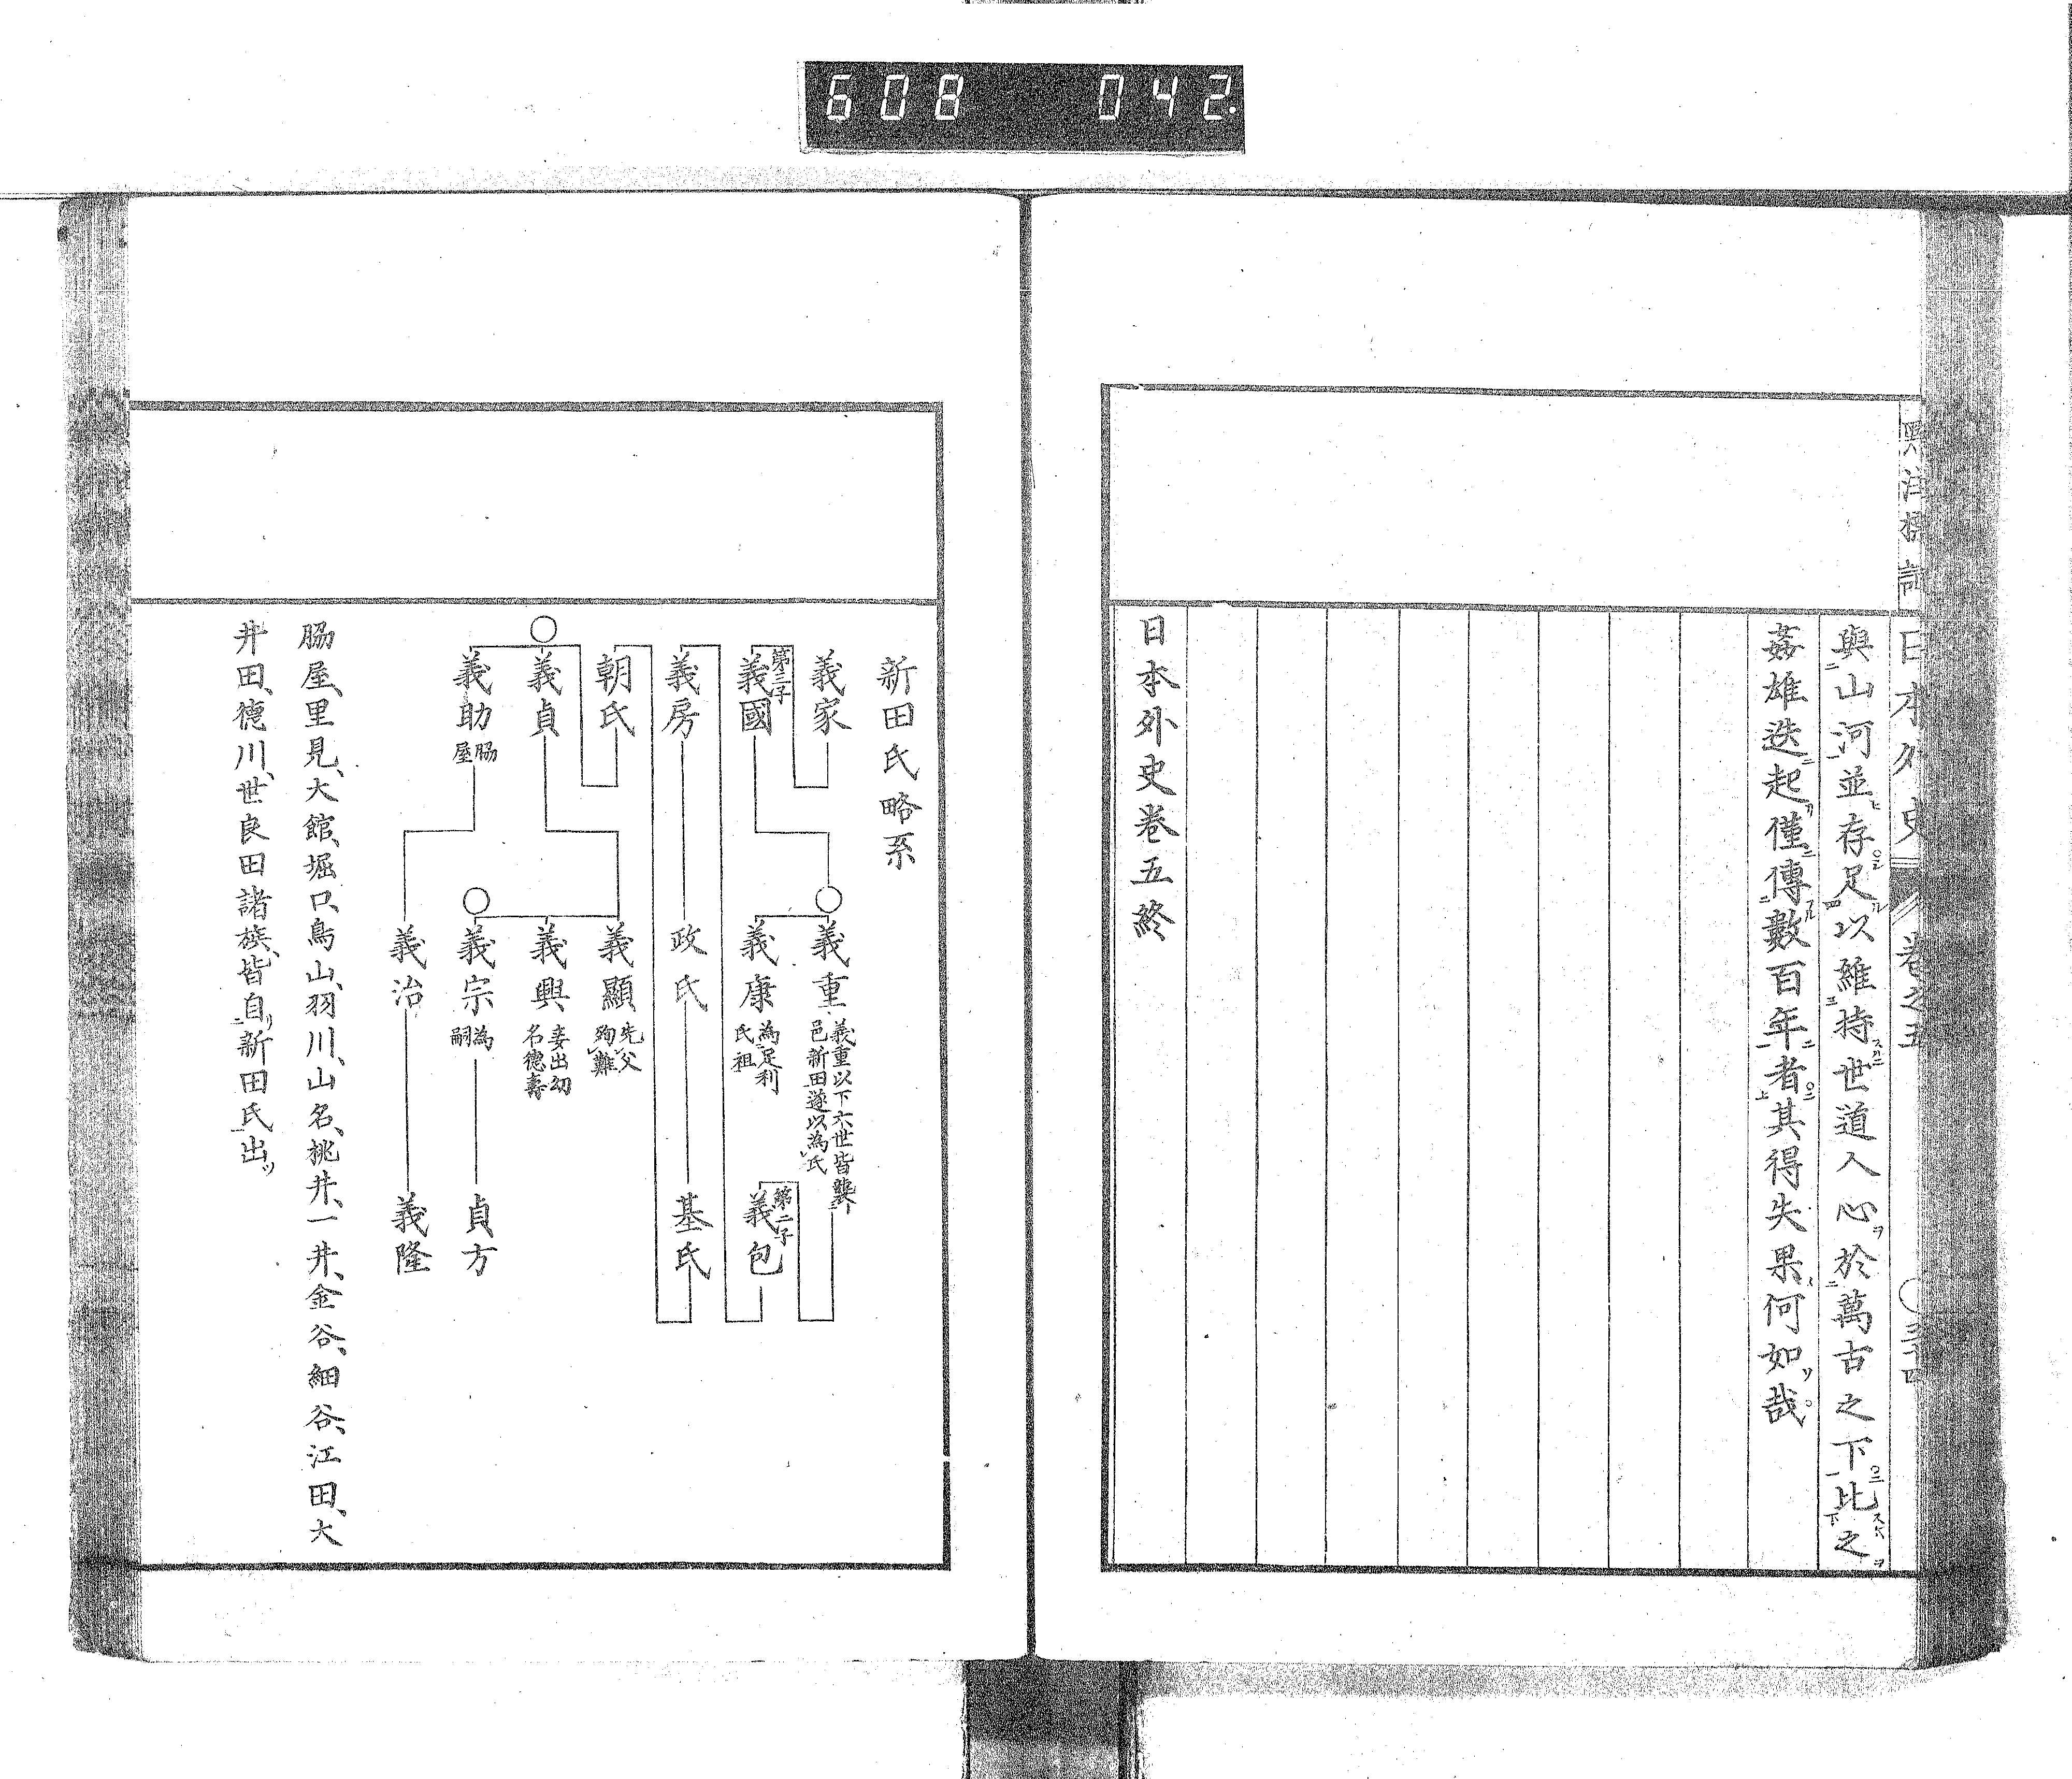 608 042.
日本外史 卷之五
與山河並存足以維持世道人心於萬古之下比之
姦雄迭起僅傳數百年者其得失果何如哉
日本外史卷五終
新田氏略系
義家
第三子
義國
義重
義重以下六世皆襲
邑新田遂以為氏
義康
為足利
氏祖
第二子
義包
義房
政氏
基氏
朝氏
義貞
義助
脇
屋
義顯
先父
殉難
義興
妾出幼
名德壽
義宗
為
嗣
貞方
義治
義隆
脇屋、里見、大館、堀口、鳥山、羽川、山名、桃井、一井、金谷、細谷、江田、大
井田、德川、世良田諸族、皆自新田氏出